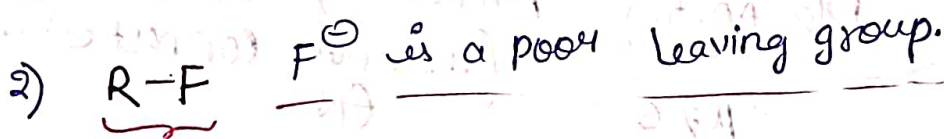 2) R-F F⊖ is a poor leaving group.